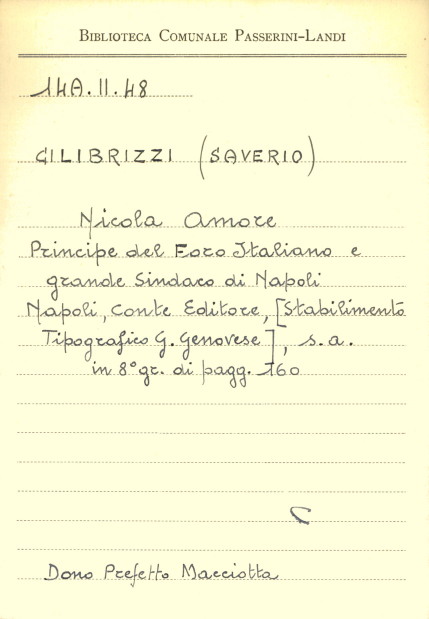 BIBLIOTECA COMUNALE PASSERINI-LANDI
14A.II.48
CILIBRIZZI (SAVERIO)
Nicola Amore
Principe del Foro Italiano e
grande Sindaco di Napoli
Napoli, Conte Editore, [Stabilimento
Tipografico G. Genovese], s.a.
in 8° gr. di pagg. 160
C
Dono Prefetto Macciotta